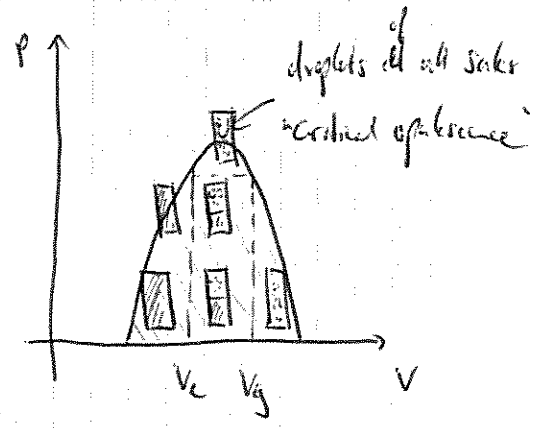 P
of
droplets at all scales
"Critical opalescence"
V_l
V_g
V